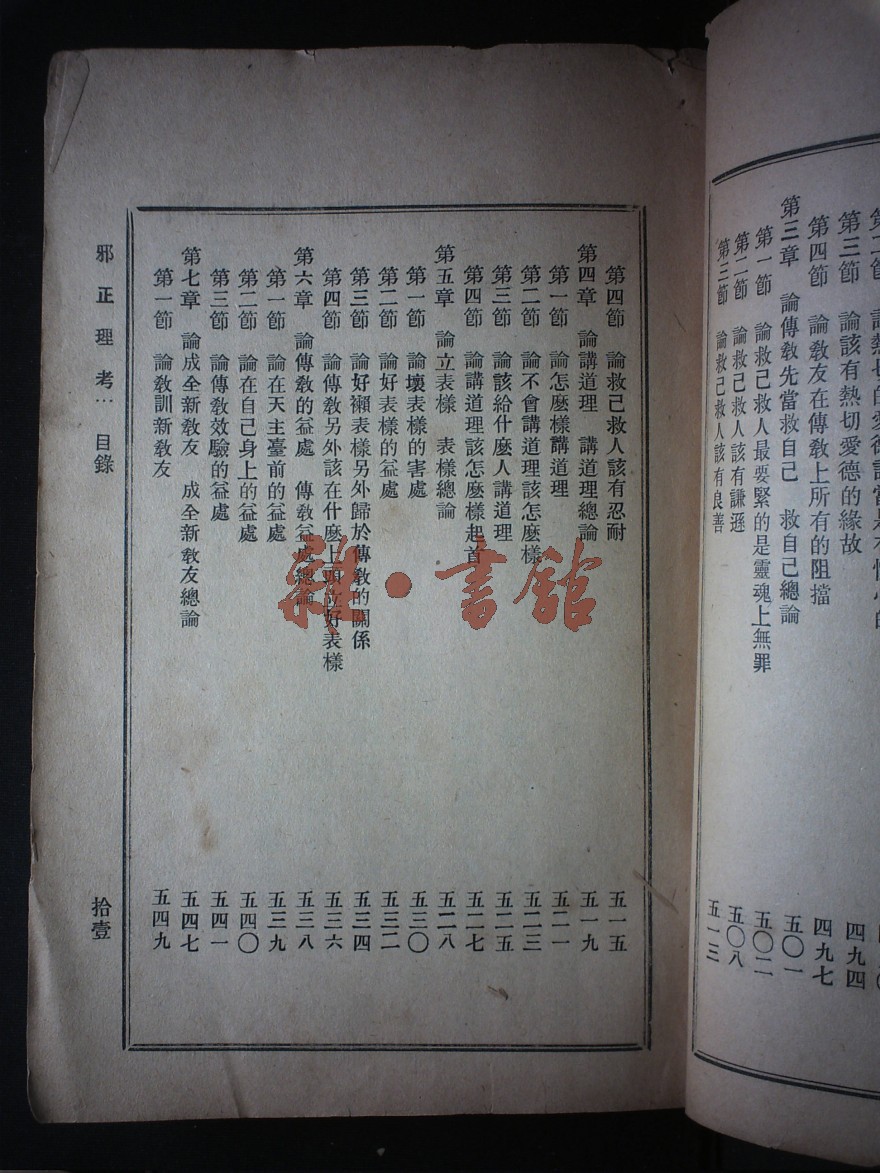 第三節 論該有熱切愛德的緣故 四九四
第四節 論教友在傳教上所有的阻擋 四九七
第三章 論傳教先當救自己 救自己總論 五〇一
第一節 論救己救人最要緊的是靈魂上無罪 五〇二
第二節 論救己救人該有謙遜 五〇八
第三節 論救己救人該有良善 五一三
第四節 論救己救人該有忍耐 五一五
第四章 論講道理 講道理總論 五一九
第一節 論怎麼樣講道理 五二一
第二節 論不會講道理該怎麼樣 五二三
第三節 論該給什麼人講道理 五二五
第四節 論講道理該怎麼樣起首 五二七
第五章 論立表樣 表樣總論 五二八
第一節 論壞表樣的害處 五三〇
第二節 論好表樣的益處 五三二
第三節 論好襰表樣另外歸於傳教的關係 五三四
第四節 論傳教另外該在什麼上頭立好表樣 五三六
第六章 論傳教的益處 傳教益處總論 五三八
第一節 論在天主臺前的益處 五三九
第二節 論在自己身上的益處 五四〇
第三節 論傳教效驗的益處 五四一
第七章 論成全新教友 成全新教友總論 五四七
第一節 論教訓新教友 五四九
邪正理考… 目錄 拾壹
雜·書館